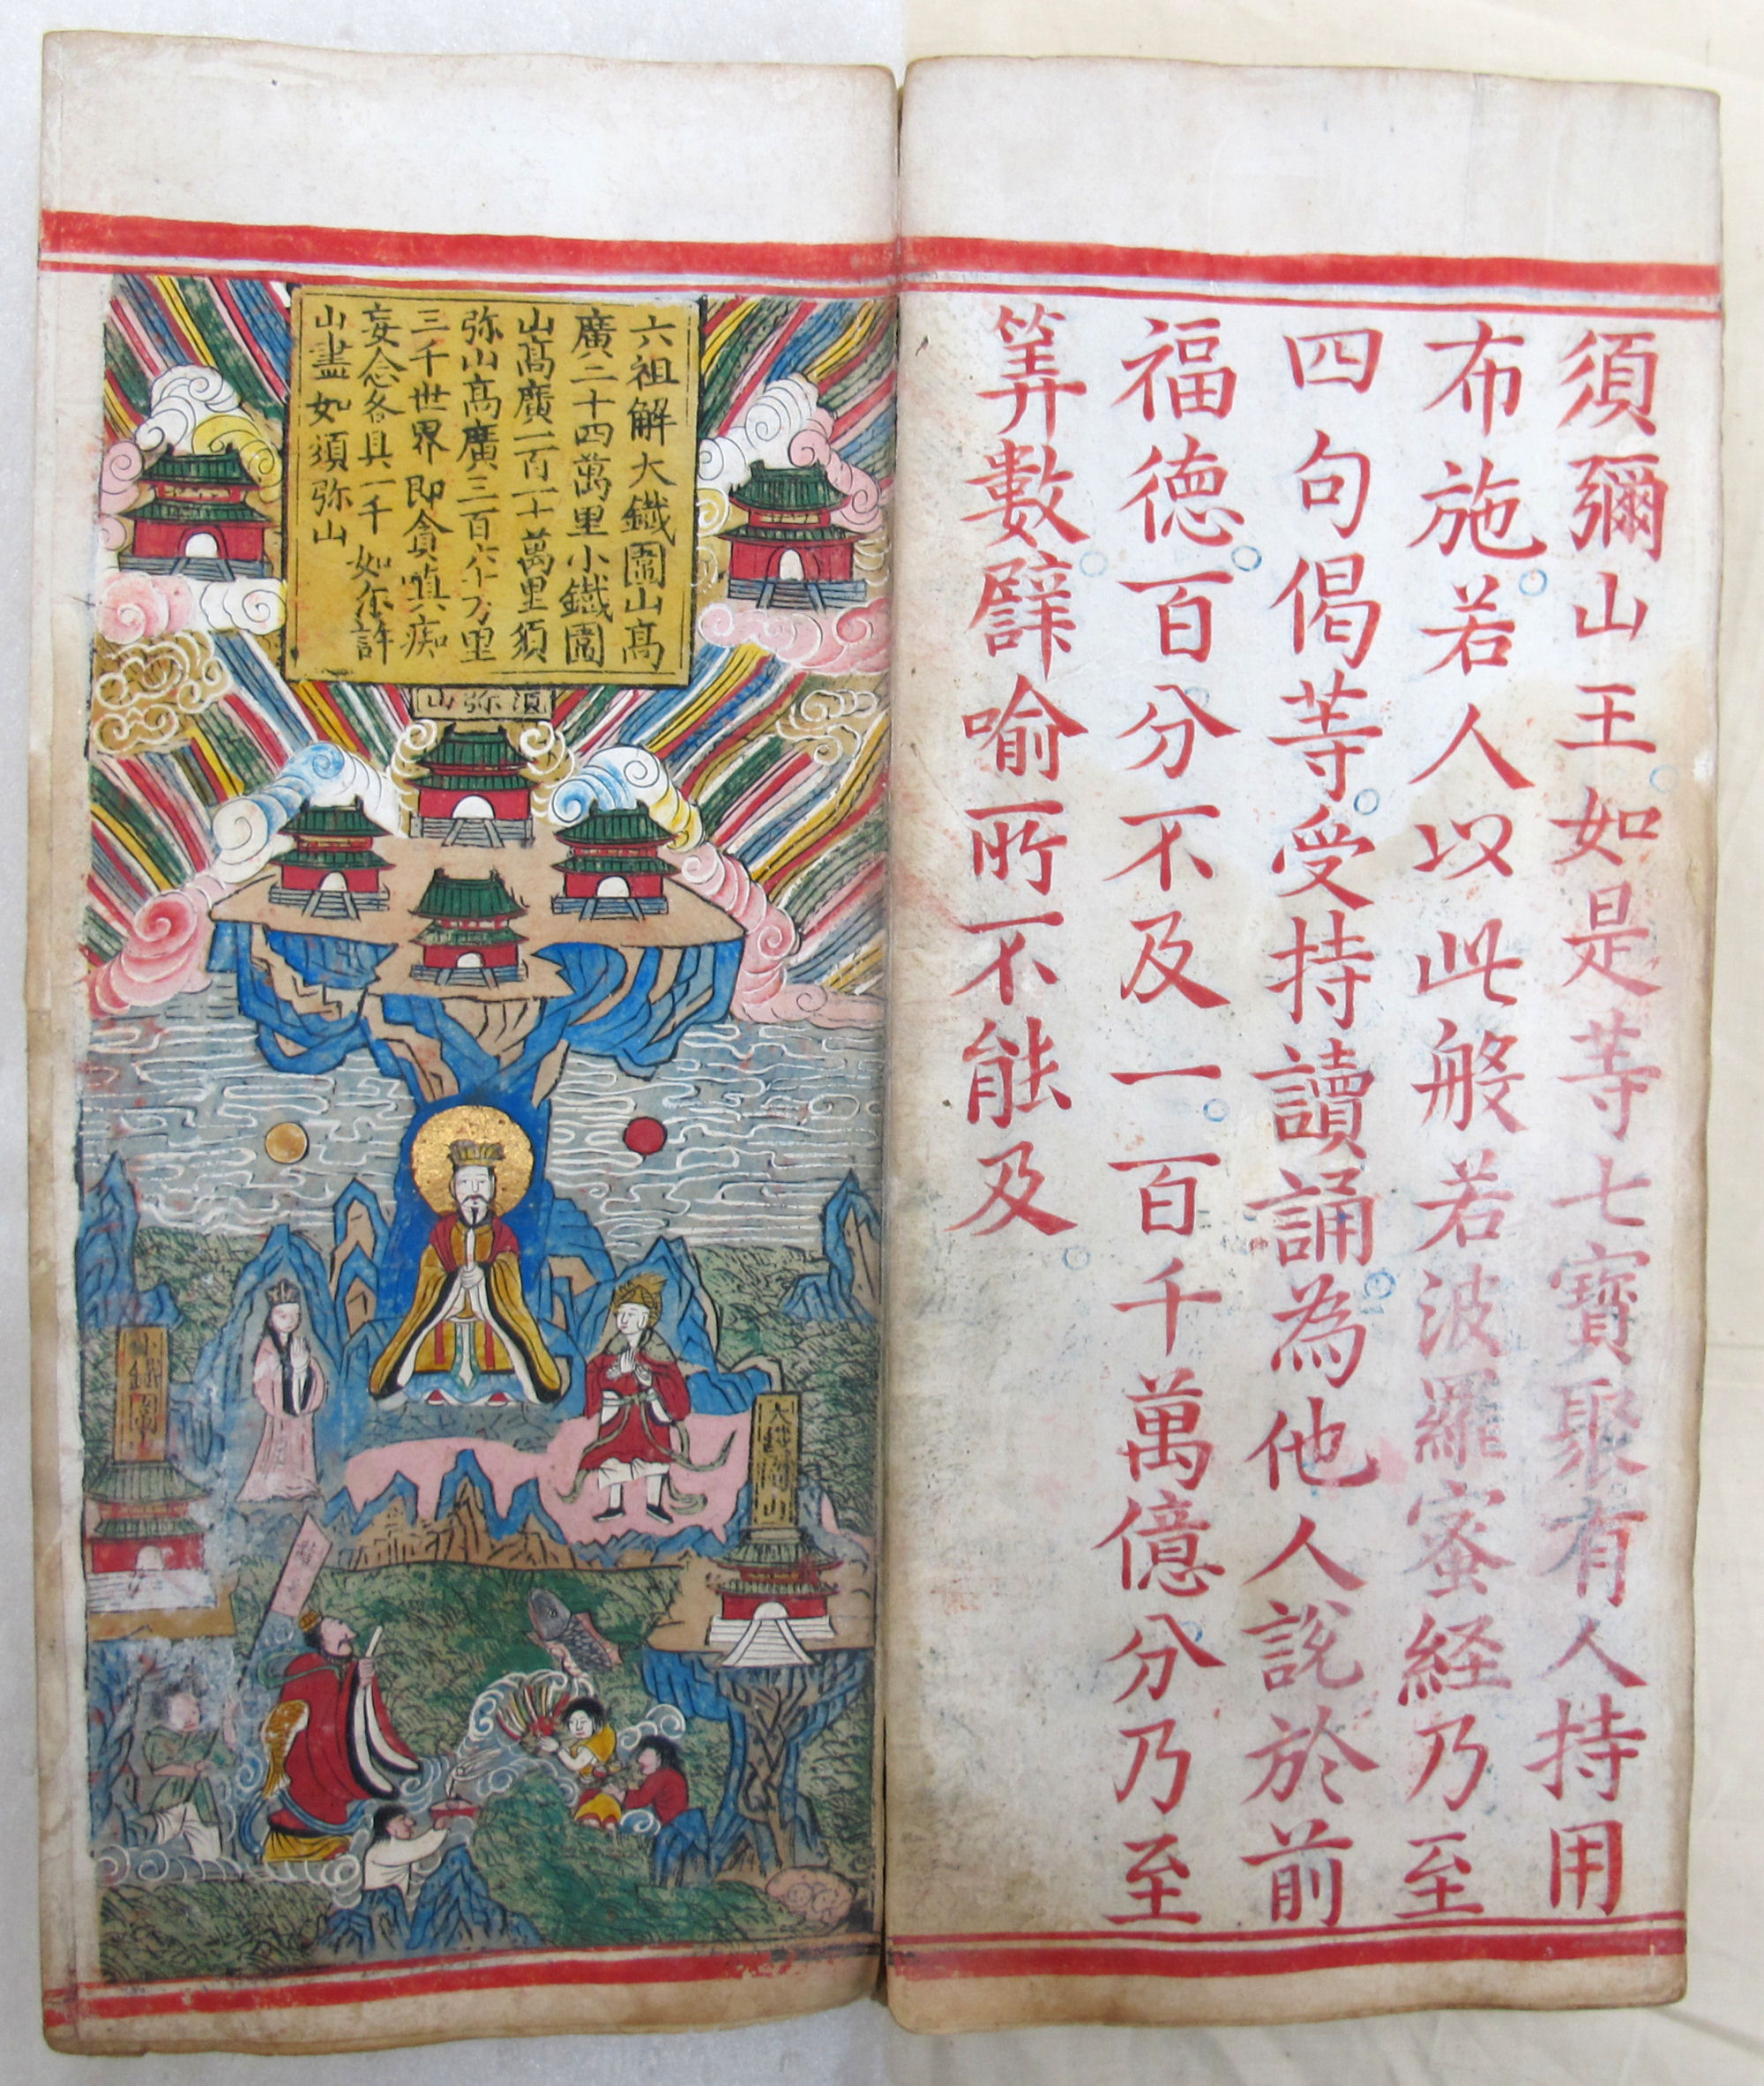 須彌山王如是䓁七寶聚有人持用
布施若人以此般若波羅蜜経乃至
四句偈䓁受持讀誦為他人說於前
福德百分不及一百千萬億分乃至
筭數譬喻所不能及
六祖解大鐵圍山髙
廣二十四萬里小鐵圍
山髙廣一百一十萬里須
弥山髙廣三百六十万里
三千世界即貪嗔痴
妄念各具一千如尔許
山盡如須弥山
須弥山
大鐵圍山
小鐵圍